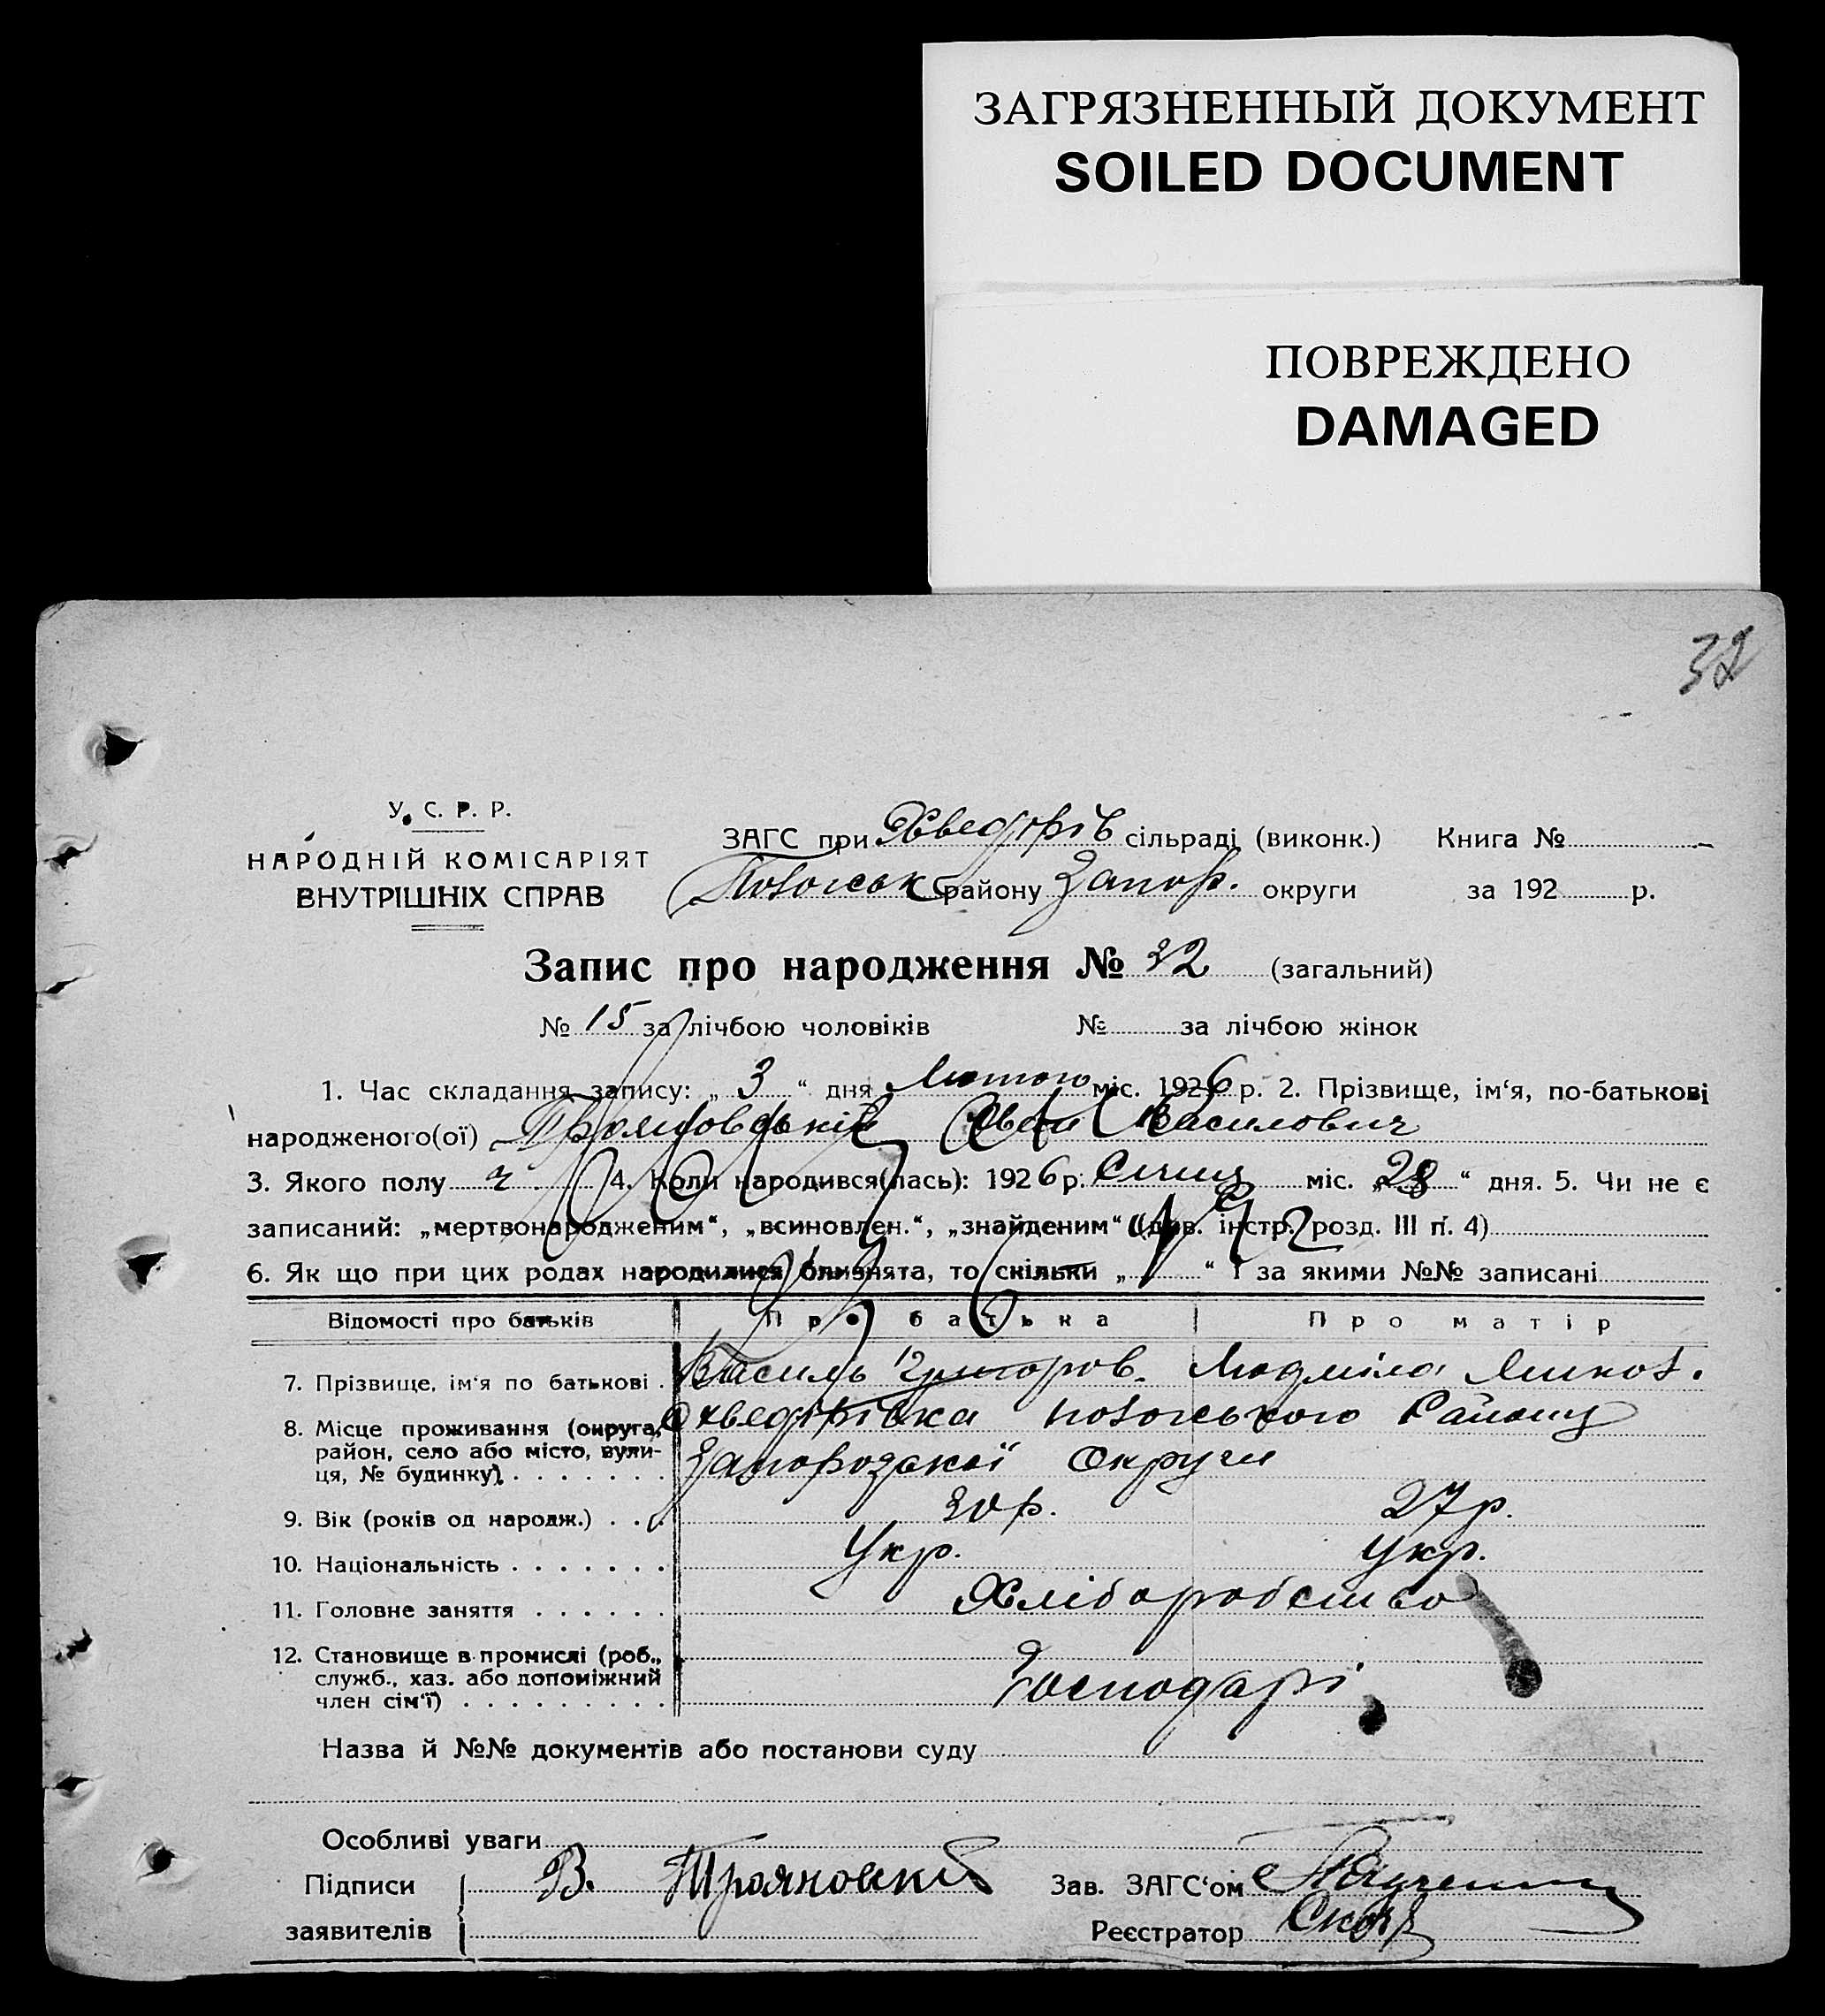 ЗАГРЯЗНЕННЫЙ ДОКУМЕНТ
SOILED DOCUMENT
ПОВРЕЖДЕНО
DAMAGED
32
У. С. Р. Р.
НАРОДНІЙ КОМІСАРІЯТ
ВНУТРІШНІХ СПРАВ
ЗАГС при Хведорів сільраді (виконк.) Книга №
району Запор. округи за 192 р.
Запис про народження № 32 (загальний)
№ 15 за лічбою чоловіків № за лічбою жінок
1. Час складання запису: „ 3 “ дня Лютого міс. 1926 р. 2. Прізвище, ім‘я, по-батькові
народженого(ої) Трояновський Іван Василович
3. Якого полу ч 4. Коли народився(лась): 1926 р. Січня міс. „ 28 “ дня. 5. Чи не є
записаний: „мертвонародженим“, „всиновлен.“, „знайденим“ (див. інстр. розд. III п. 4)
6. Як що при цих родах народилися близнята, то скільки „ “ і за якими №№ записані
Відомості про батьків Про батька Про матір
7. Прізвище, ім‘я по батькові . Василь Григоров. Людміла
8. Місце проживання (округа, район, село або місто, вулиця, № будинку) Району
Запорозької Округи
9. Вік (років од народж.) . . . 30 р. 27 р.
10. Національність . . . . . . . Укр. Укр.
11. Головне заняття . . . . . . Хліборобство
12. Становище в промислі (роб., служб., хаз. або допоміжний член сім‘ї) . . . . . . . . . Господарі
Назва й №№ документів або постанови суду
Особливі уваги
Підписи заявителів В. Трояновскій Зав. ЗАГС‘ом
Реєстратор